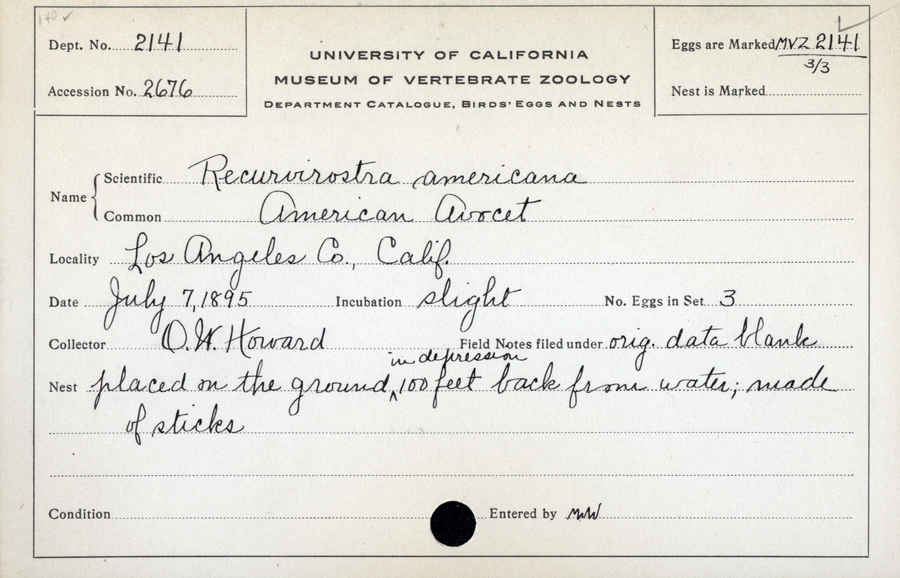 140 ✓
Dept. No. 2141
Accession No. 2676
UNIVERSITY OF CALIFORNIA
MUSEUM OF VERTEBRATE ZOOLOGY
DEPARTMENT CATALOGUE, BIRDS' EGGS AND NESTS
Eggs are Marked MVZ 2141
3/3
Nest is Marked
Name
Scientific Recurvirostra americana
Common American Avocet
Locality Los Angeles Co., Calif.
Date July 7, 1895 Incubation slight No. Eggs in Set 3
Collector O.W. Howard Field Notes filed under orig. data blank
in depression
Nest placed on the ground, ^ 100 feet back from water; made
of sticks
Condition Entered by MW